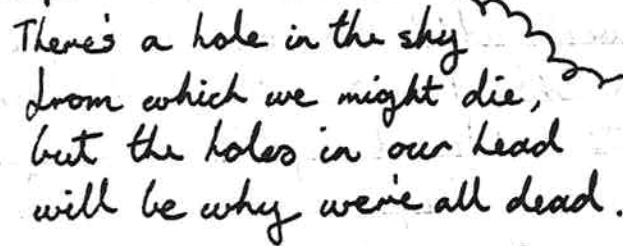 There's a hole in the sky
from which we might die,
but the holes in our head
will be why we're all dead.